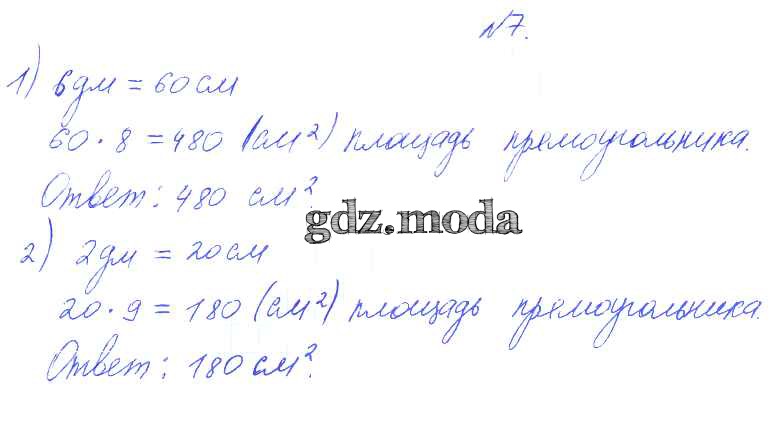 №7.
1) 6дм = 60см
60 · 8 = 480 (см²) площадь прямоугольника.
Ответ: 480 см².
gdz.moda
2) 2дм = 20см
20 · 9 = 180 (см²) площадь прямоугольника.
Ответ: 180 см².